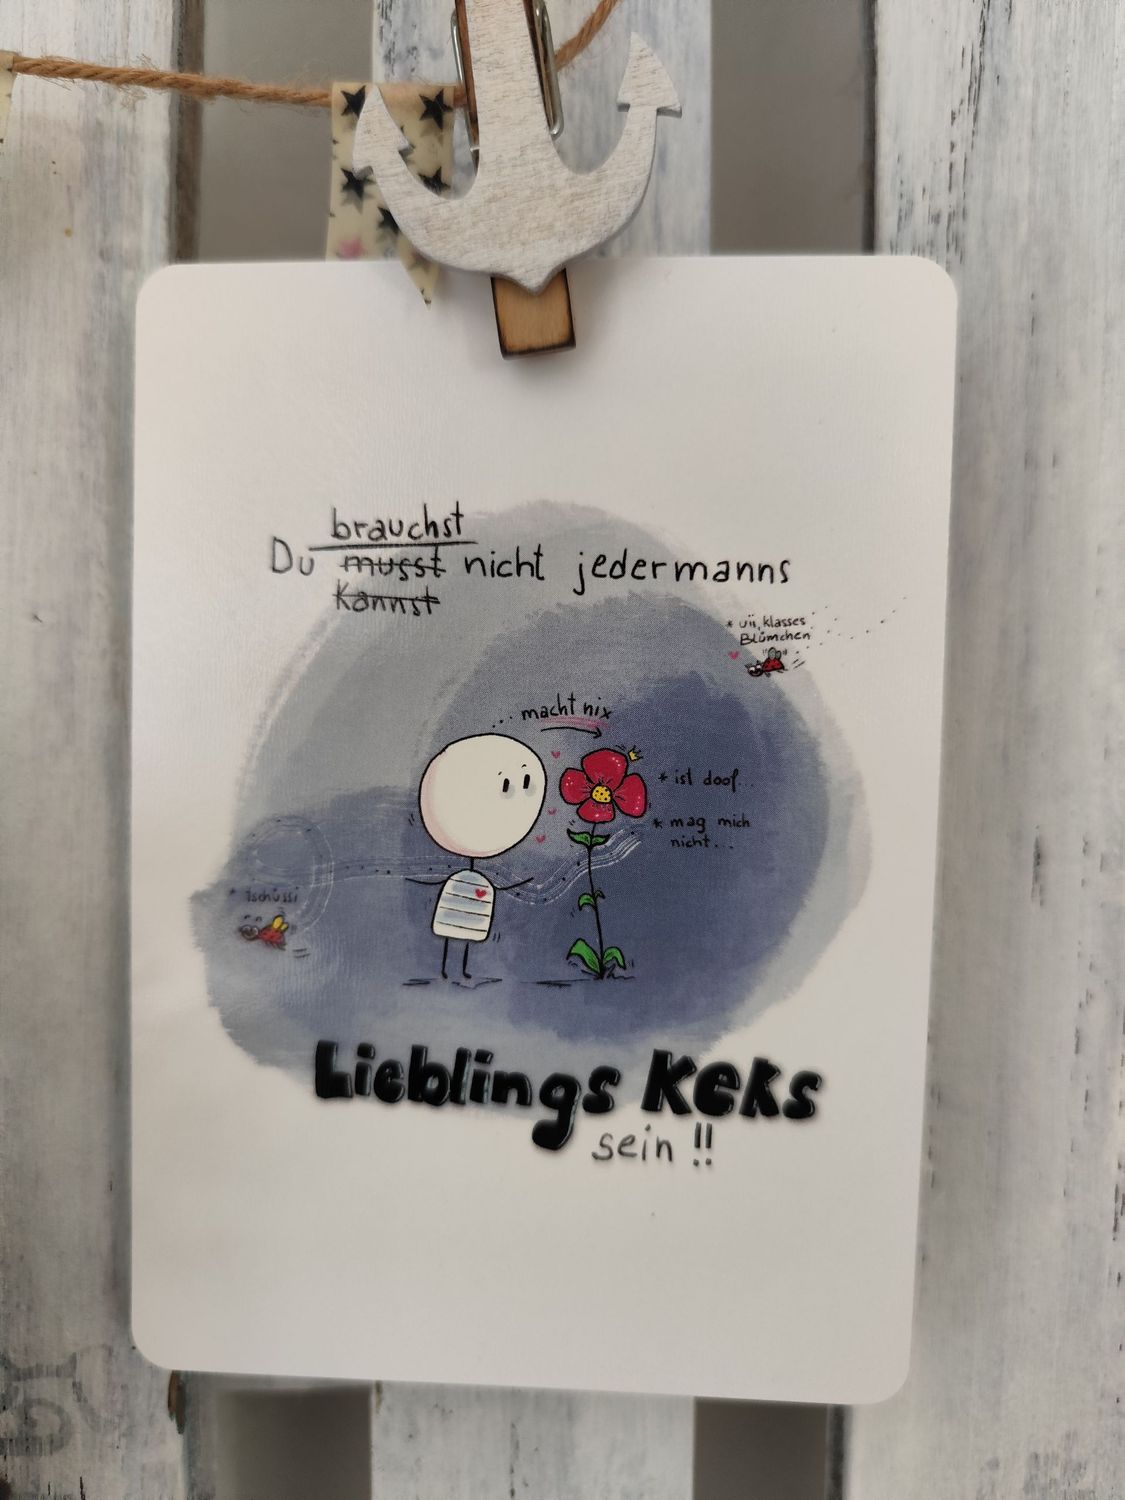 brauchst
Du musst nicht jedermanns
Kannst
* uii, klasses
Blümchen
... macht nix
* ist doof...
* mag mich
nicht...
* tschüssi
Lieblings Keks
sein !!